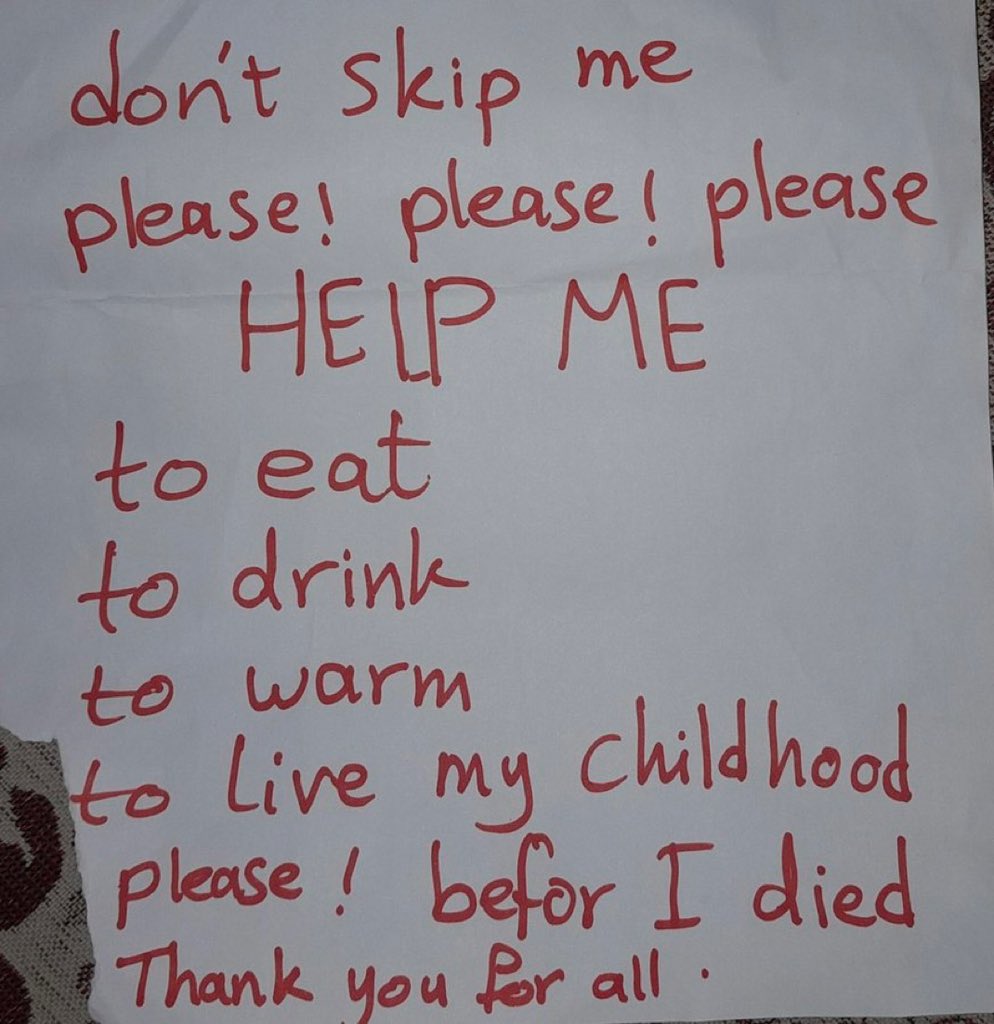 don't skip me
please! please! please
HELP ME
to eat
to drink
to warm
to live my childhood
please! befor I died
Thank you for all.